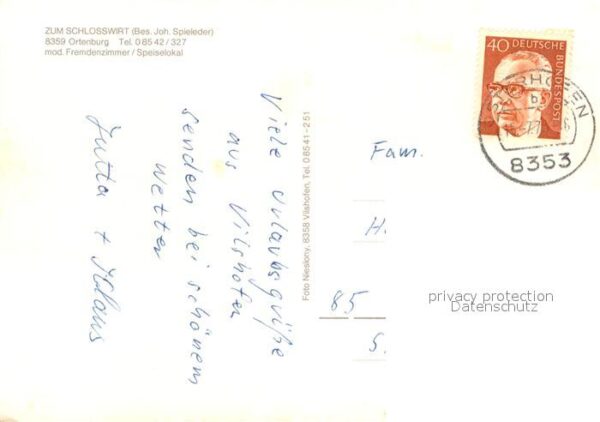 ZUM SCHLOSSWIRT (Bes. Joh. Spieleder)
8359 Ortenburg Tel. 08542/327
mod. Fremdenzimmer / Speiselokal
Viele Urlaubsgrüße
aus Vilshofen
senden bei schönem
Wetter
Jutta + Klaus
Foto Nieslony, 8358 Vilshofen, Tel. 08541-251
40
DEUTSCHE
BUNDESPOST
8353
Fam.
H.
85
S.
privacy protection
Datenschutz